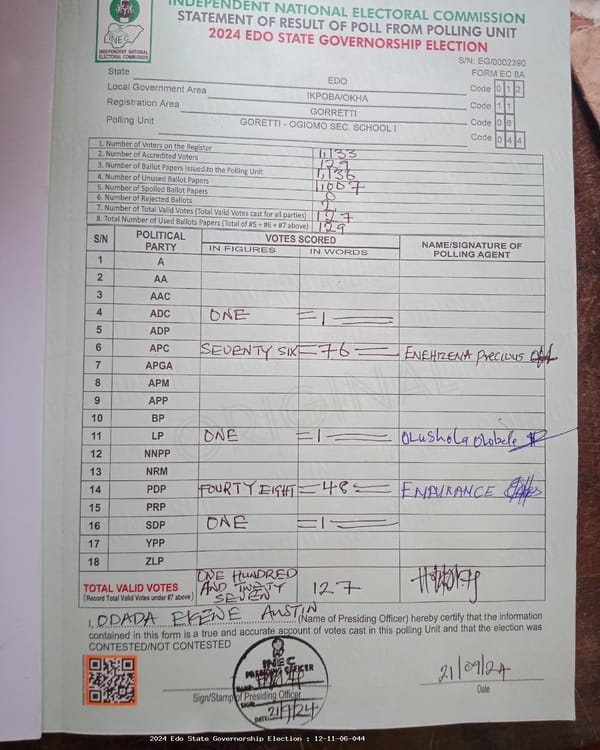 INDEPENDENT NATIONAL ELECTORAL COMMISSION
STATEMENT OF RESULT OF POLL FROM POLLING UNIT
2024 EDO STATE GOVERNORSHIP ELECTION
INEC
INDEPENDENT NATIONAL
ELECTORAL COMMISSION
S/N: EG/0002390
FORM EC 8A
State EDO Code 0 1 2
Local Government Area IKPOBA/OKHA Code 1 1
Registration Area GORRETTI Code 0 6
Polling Unit GORETTI - OGIOMO SEC. SCHOOL I Code 0 4 4
1. Number of Voters on the Register 1,133
2. Number of Accredited Voters 129
3. Number of Ballot Papers Issued to the Polling Unit 1,136
4. Number of Unused Ballot Papers 1,007
5. Number of Spoiled Ballot Papers 0
6. Number of Rejected Ballots 2
7. Number of Total Valid Votes (Total Valid Votes cast for all parties) 127
8. Total Number of Used Ballots Papers (Total of #5 + #6 + #7 above) 129
S/N POLITICAL PARTY VOTES SCORED NAME/SIGNATURE OF POLLING AGENT
IN FIGURES IN WORDS
1 A
2 AA
3 AAC
4 ADC ONE =1=
5 ADP
6 APC SEVENTY SIX =76= ENEHIZENA Precious
7 APGA
8 APM
9 APP
10 BP
11 LP ONE =1= Olushola Olobele
12 NNPP
13 NRM
14 PDP FOURTY EIGHT =48= ENDURANCE
15 PRP
16 SDP ONE =1=
17 YPP
18 ZLP
ORIGINAL
TOTAL VALID VOTES ONE HUNDRED AND TWETY SEVEN 127
(Record Total Valid Votes under #7 above)
I, ODADA EKENE AUSTIN (Name of Presiding Officer) hereby certify that the information
contained in this form is a true and accurate account of votes cast in this polling Unit and that the election was
CONTESTED/NOT CONTESTED
INEC
PRESIDING OFFICER
DATE: 21/9/24
Sign/Stamp of Presiding Officer
21/09/24
Date
2024 Edo State Governorship Election : 12-11-06-044